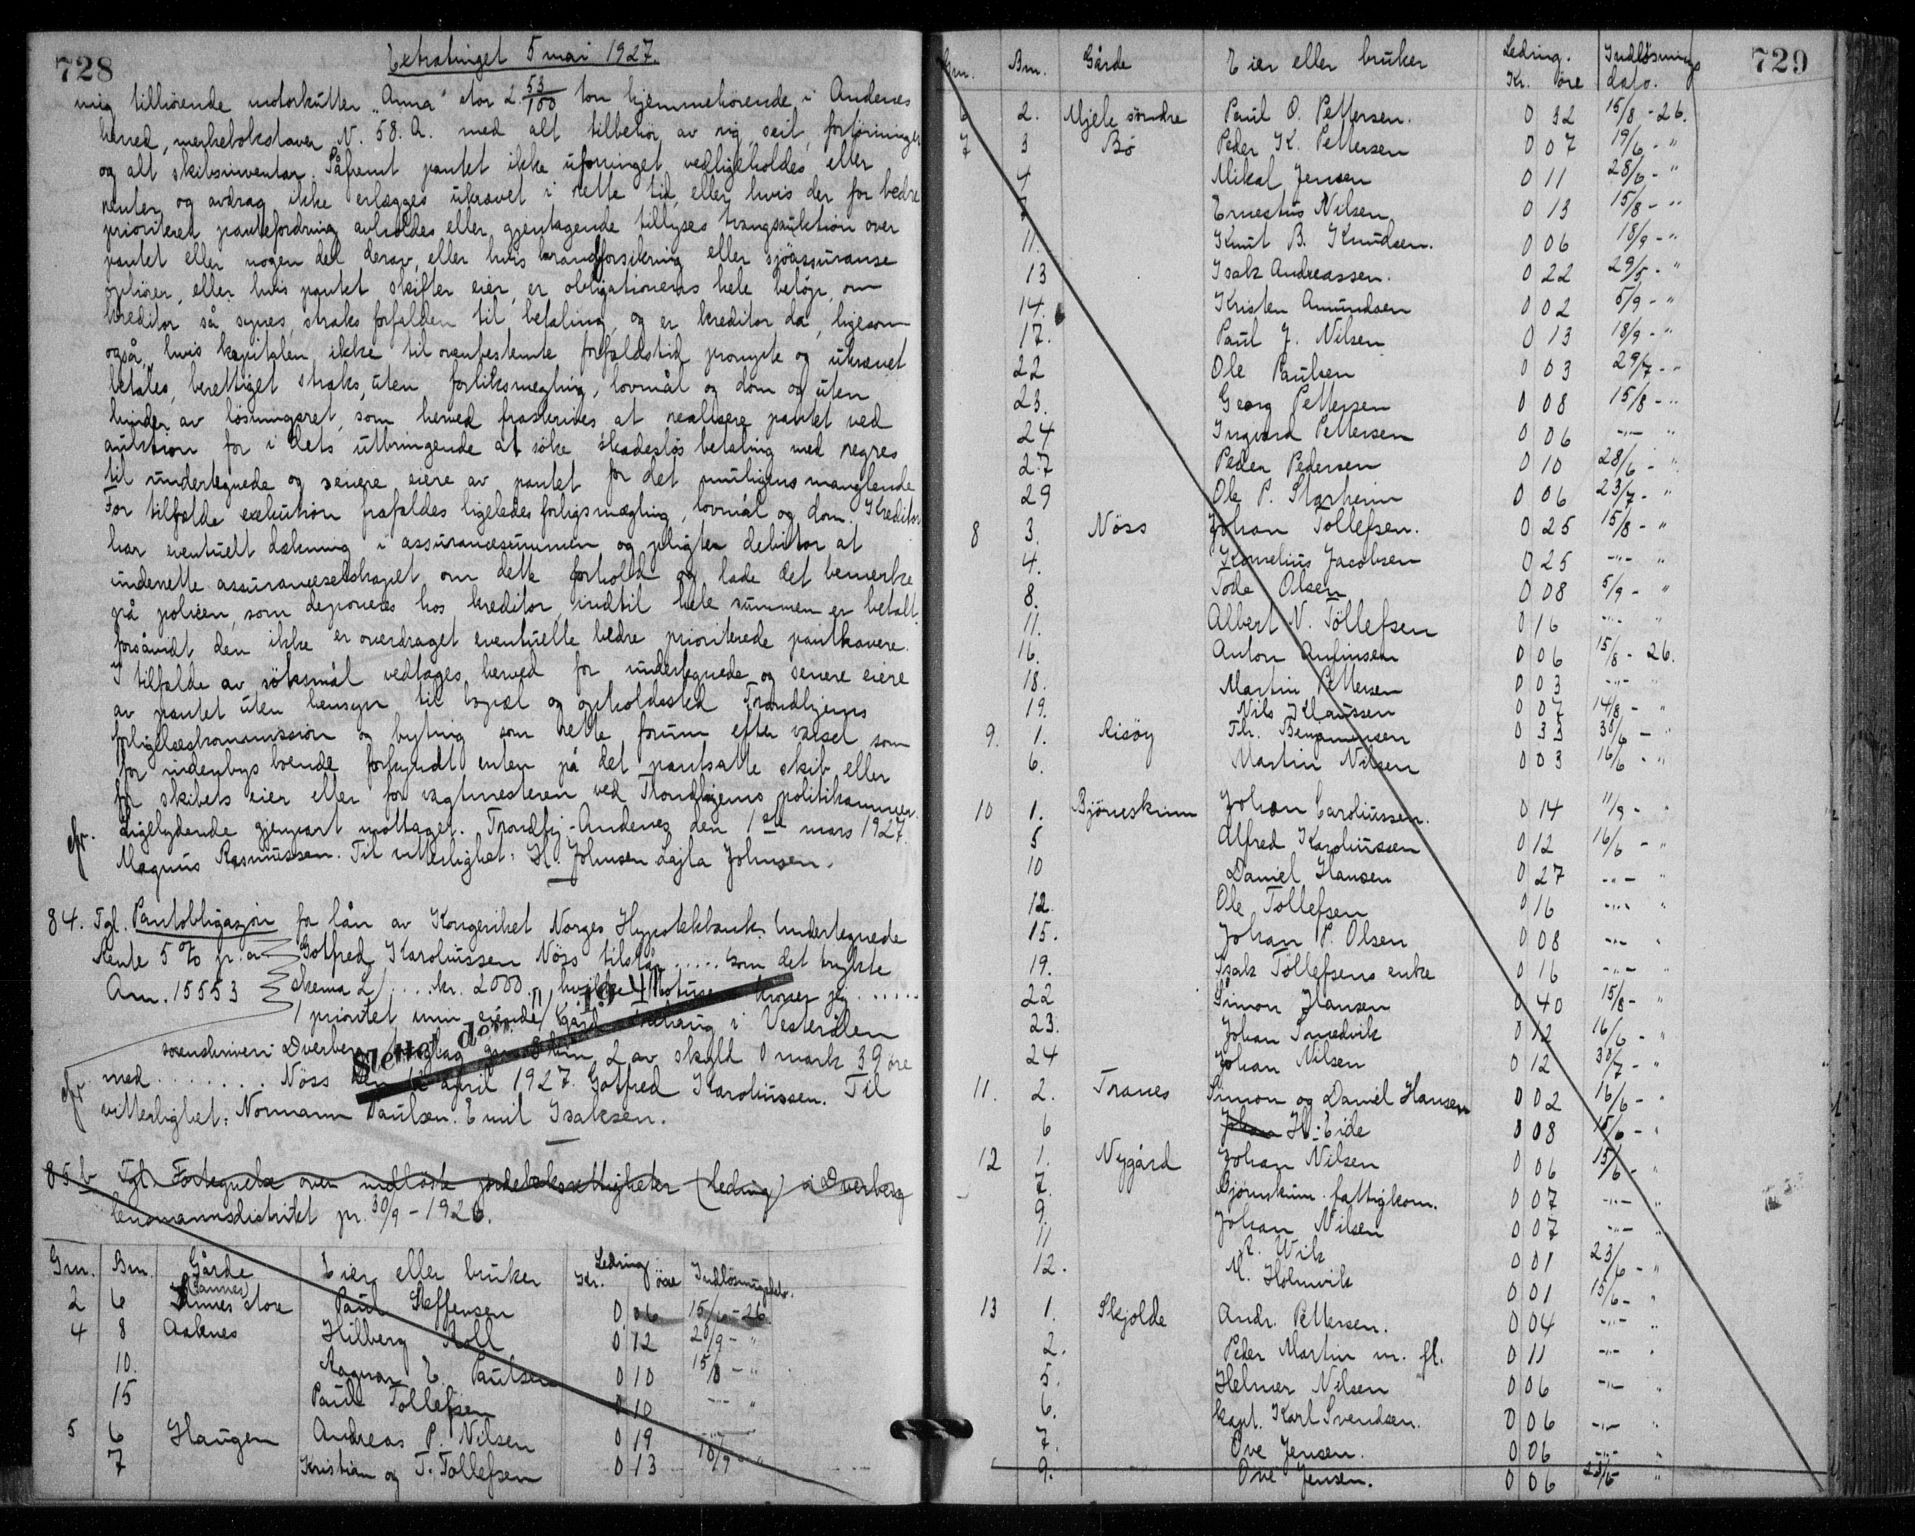 728
Extratinget 5 mai 1927.
mig tilhörende motorkutter "Anna" stor 2.53/100 ton hjemmehörende i Andenes
herred, merkebokstaver N. 58. A. med alt tilbehör av rig, seil, fortöininger
og alt skibsinventar. Såfremt pantet ikke uforringet vedligeholdes eller
renter og avdrag ikke erlægges ukrævet i rette tid, eller hvis der for bedre
prioritered pantefordring avholdes eller gjentagende tillyses tvangsauktion over
pantet eller nogen del derav, eller hvis brandforsikring eller sjöassuranse
ophörer, eller hvis pantet skifter eier, er obligationens hele belöp, om
kreditor så synes, straks forfalden til betaling, og er kreditor da, ligesom
også, hvis kapitalen ikke til ovenbestemte forfaldstid prompte og ukrævet
betales, berettiget straks, uten forliksmegling, lovmål og dom og uten
hinder av lösningsret, som herved fraskrives at realisere pantet ved
auktion for i dets utbringende at söke skadeslös betaling med regres
til undertegnede og senere eiere av pantet for det muligens manglende
For tilfælde exekution frafaldes ligeledes forligsmægling, lovmål og dom. Kreditor
har eventuelt dækning i assurancesummen og pligter debitor at
underrette assuranceselskapet om dette forhold og lade det bemerke
på policen, som deponeres hos kreditor indtil hele summen er betalt
forsåvidt den ikke er overdraget eventuelle bedre prioriterede panthavere.
I tilfælde av söksmål vedtages herved for undertegnede og senere eiere
av pantet uten hensyn til bopæl og opholdssted Trondhjems
forligelseskommission og byting som rette forum efter varsel som
for indenbys boende forkyndt enten på det pantsatte skib eller
for skibets eier eller for vagtmesteren ved Trondhjems politikammer.
Ligelydende gjenpart mottaget. Trondhj-Andenes den 1ste mars 1927.
Magnus Rasmussen. Til vitterlighet: H. Johnsen Lajla Johnsen.
84. Tgl. Pantobligasjon for lån av Kongeriket Norges Hypotekbank. Undertegnede
Rente 5 % pr. a Gotfred Karoliussen Nöss tilstår ..... som det trykte
Anm. 15553 skema 2/ .... kr. 2000 hvilke kroner jeg ......
1 prioritet min eiende Gård i Vesterålen
sorenskriveri Dverberg bnr. 2 av skyld 0 mark 39 öre
Slettet den 11/ 1941
med ........ Nöss den april 1927. Gotfred Karoliussen. Til
vitterlighet: Normann Paulsen. Emil Isaksen.
85 b Tgl. Fortegnelse over indlöste jordeboksrettigheter (leding) i Dverberg
lensmannsdistrikt pr. 30/9 - 1926.
Gnr. Bnr. Gårde Eier eller bruker Ledring Kr. öre Indlösningsdat.
2 6 Åmnes store Paul Steffensen 0 06 15/6-26
4 8 Aaknes Hilberg Roll 0 12 20/9 - "
10. Ragnar E. Paulsen 0 10 15/8 - "
15 Paul Tollefsen 0 10 -"- "
5 6 Haugen Andreas P. Nilsen 0 19
7 Kristian og T. Tollefsen 0 13 18/9 - "
729
Gnr. Bnr. Gårde Eier eller bruker Ledring. Kr. öre Indlösnings dato.
6 2. Mjele söndre Paul O. Pettersen. 0 32 15/8 - 26.
7 3 Bö Peder K. Pettersen 0 07 19/6 - "
4 Mikal Jensen 0 11 28/6 - "
7 Ernestus Nilsen 0 13 15/8 - "
11. Knut B. Knudsen. 0 06 18/9 - "
13 Isak Andreassen. 0 22 29/5 - "
14. Kristen Amundsen 0 02 5/9 - "
17. Paul J. Nilsen 0 13 18/9 - "
22 Ole Paulsen 0 03 29/7 - "
23. Georg Pettersen 0 08 15/8 - "
24 Ingvard Pettersen 0 06 -"- "
27 Peder Pedersen 0 10 28/6 - "
29 Ole P. Starheim 0 06 23/7 - "
8 3. Nöss Johan Tollefsen. 0 25 15/8 - "
4. Kornelius Jacobsen 0 25 -"- "
8. Tode Olsen 0 08 5/9 - "
11. Albert N. Töllefsen 0 16 -"- "
16. Anton Anfinsen 0 06 15/8 - 26.
18. Martin Pettersen 0 03 -"- "
19. Nils Klaussen 0 07 14/8 - "
9. 1. Risöy Th. Benjaminsen 0 33 30/6 - "
6. Martin Nilsen 0 03 16/6 - "
10 1. Bjönnskinn Johan Caroliussen. 0 14 11/9 - "
5 Alfred Karoliussen 0 12 16/6 - "
10 Daniel Hansen 0 27 -"- "
12. Ole Tollefsen 0 16 -"- "
15. Johan P. Olsen 0 08 -"- "
19. Isak Töllefsens enke 0 16 -"- "
22 Simon Hansen 0 40 15/8 - "
23. Johan Smedvik 0 12 16/6 - "
24 Johan Nilsen 0 12 30/7 - "
11. 2. Tranes Simon og Daniel Hansen 0 02 16/6 - "
6 Johan H. Eide 0 08 15/6 - "
12 1. Nygård Johan Nilsen 0 06 15/6 - "
7. Bjönnskinn fattigkom. 0 07 -"- "
9. Johan Nilsen 0 07 -"- "
11 R. Wik 0 01 23/6 - "
12. M. Holmvik 0 01 15/6 - "
13 1. Skjolde Andr. Pettersen. 0 04 -"- "
2. Peder Martin m. fl. 0 11 -"- "
5. Helmer Nilsen 0 06 -"- "
6. kapt. Karl Svendsen. 0 06 -"- "
7. Ove Jensen. 0 06 -"- "
9. Ove Jensen. 0 06 23/6 "